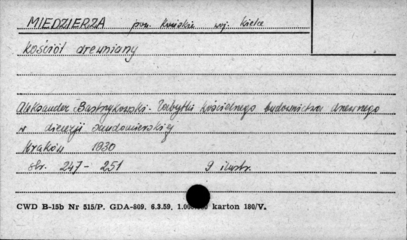 MIEDZIERZA pow. Końskie woj. Kielce
Kościół drewniany
Aleksander Bastrzykowski. Zabytki kościelnego budownictwa drewnego
w diecezji sandomierskiej
Kraków 1930
str. 247 - 251 9 ilustr.
CWD B-15b Nr 515/P. GDA-809, 6.3.59, 1.000 karton 180/V.